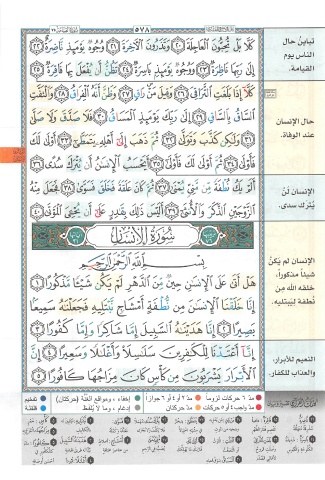 ٥٧٨
كَلَّا بَلْ تُحِبُّونَ ٱلْعَاجِلَةَ ٢٠ وَتَذَرُونَ ٱلْآخِرَةَ ٢١ وُجُوهٌ يَوْمَئِذٍ نَّاضِرَةٌ ٢٢
إِلَىٰ رَبِّهَا نَاظِرَةٌ ٢٣ وَوُجُوهٌ يَوْمَئِذٍ بَاسِرَةٌ ٢٤ تَظُنُّ أَن يُفْعَلَ بِهَا فَاقِرَةٌ ٢٥
كَلَّا إِذَا بَلَغَتِ ٱلتَّرَاقِيَ ٢٦ وَقِيلَ مَنْ رَاقٍ ٢٧ وَظَنَّ أَنَّهُ ٱلْفِرَاقُ ٢٨ وَٱلْتَفَّتِ
ٱلسَّاقُ بِٱلسَّاقِ ٢٩ إِلَىٰ رَبِّكَ يَوْمَئِذٍ ٱلْمَسَاقُ ٣٠ فَلَا صَدَّقَ وَلَا صَلَّىٰ
٣١ وَلَٰكِن كَذَّبَ وَتَوَلَّىٰ ٣٢ ثُمَّ ذَهَبَ إِلَىٰ أَهْلِهِ يَتَمَطَّىٰ ٣٣ أَوْلَىٰ لَكَ
فَأَوْلَىٰ ٣٤ ثُمَّ أَوْلَىٰ لَكَ فَأَوْلَىٰ ٣٥ أَيَحْسَبُ ٱلْإِنسَٰنُ أَن يُتْرَكَ سُدًى ٣٦
أَلَمْ يَكُ نُطْفَةً مِّن مَّنِىٍّ يُمْنَىٰ ٣٧ ثُمَّ كَانَ عَلَقَةً فَخَلَقَ فَسَوَّىٰ ٣٨ فَجَعَلَ مِنْهُ
ٱلزَّوْجَيْنِ ٱلذَّكَرَ وَٱلْأُنثَىٰ ٣٩ أَلَيْسَ ذَٰلِكَ بِقَٰدِرٍ عَلَىٰ أَن يُحْـِۧىَ ٱلْمَوْتَىٰ ٤٠
سُورَةُ الإِنسَانِ
بِسْمِ ٱللَّهِ ٱلرَّحْمَٰنِ ٱلرَّحِيمِ
هَلْ أَتَىٰ عَلَى ٱلْإِنسَٰنِ حِينٌ مِّنَ ٱلدَّهْرِ لَمْ يَكُن شَيْـًٔا مَّذْكُورًا ١
إِنَّا خَلَقْنَا ٱلْإِنسَٰنَ مِن نُّطْفَةٍ أَمْشَاجٍ نَّبْتَلِيهِ فَجَعَلْنَٰهُ سَمِيعًۢا
بَصِيرًا ٢ إِنَّا هَدَيْنَٰهُ ٱلسَّبِيلَ إِمَّا شَاكِرًا وَإِمَّا كَفُورًا ٣
إِنَّآ أَعْتَدْنَا لِلْكَٰفِرِينَ سَلَٰسِلَا۟ وَأَغْلَٰلًا وَسَعِيرًا ٤ إِنَّ
ٱلْأَبْرَارَ يَشْرَبُونَ مِن كَأْسٍ كَانَ مِزَاجُهَا كَافُورًا ٥
تباين حال
الناس يوم
القيامة.
حال الإنسان
عند الوفاة.
الإنسان لن
يُترك سدى.
الإنسان لم يَكُنْ
شيئاً مذكوراً،
خلقه الله من
نُطفة لِيَبتليه.
النعيم للأبرار،
والعذاب للكفار.
مدّ ٦ حركات لزوماً مدّ ٢ أو ٤ أو ٦ جوازاً إخفاء، ومواقع الغُنَّة (حركتان) تفخيم
مدّ واجب ٤ أو ٥ حركات مدّ حركتان إدغام، وما لا يُلفظ قلقلة